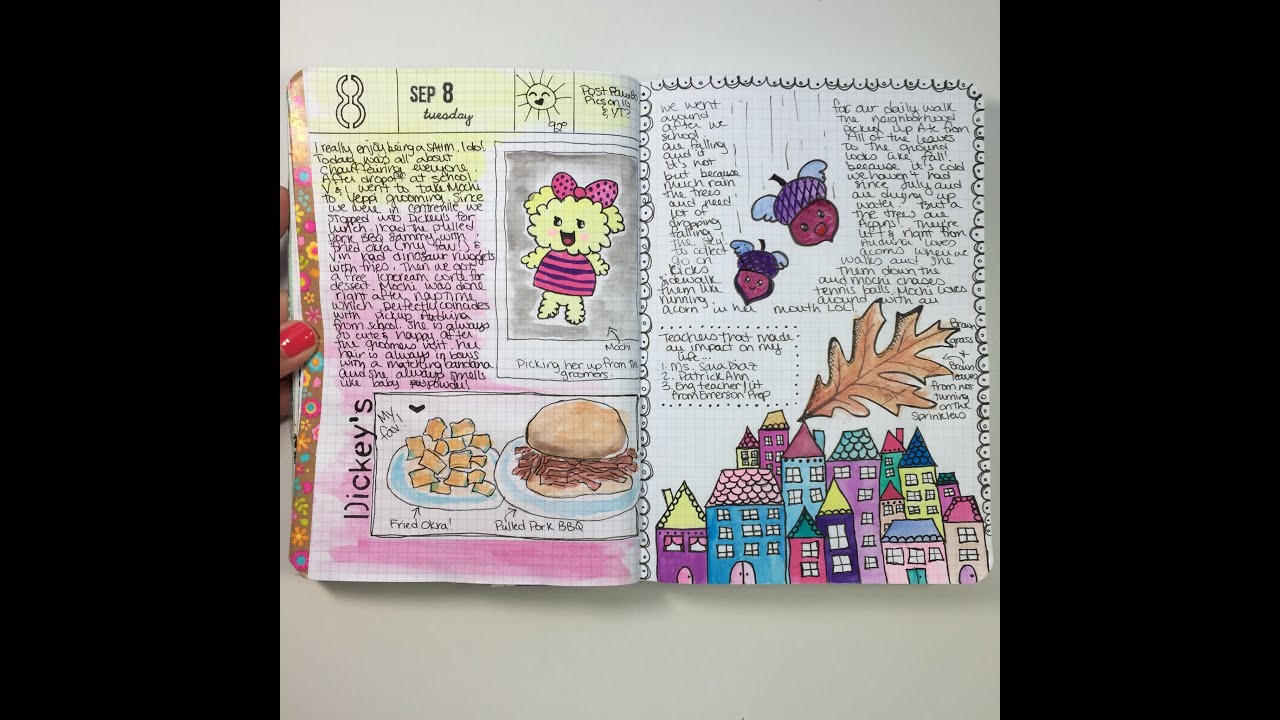 8
SEP 8
tuesday
92°
Post
Pics on IG
& YT?
I really enjoy being a SAHM. I do!
Today was all about
chauffeuring everyone.
After dropoff at school
V & I went to take Mochi
to Yeppi grooming. Since
we were in centreville we
stopped into Dickey's for
which I had the pulled
pork BBQ sammy with
fried okra (my fav!) &
had dinosaur nuggets
with fries. Then we got
a free icecream cone for
dessert. Mochi was done
right after naptime
which perfectly coincides
with pickup
from school. She is always
so cute & happy after
the groomers visit. Her
hair is always in bows
with a matching bandana
and she always smells
like baby powder!
Mochi
Picking her up from the
groomers.
Dickey's
My
fav!
Fried Okra!
Pulled Pork BBQ
we went for our daily walk
around the neighborhood
after we picked up Ate from
school. All of the leaves
are falling to the ground
and it looks like fall!
It's not because it's cold
but because we haven't had
much rain since July and
the trees are drying up
and need water. But a
lot of the trees are
dropping Acorns. They're
falling left & right from
the sky. loves
to collect acorns when we
go on walks and she
kicks them down the
sidewalk and mochi chases
them like tennis balls. Mochi loves
running around with an
acorn in her mouth LOL!
Teachers that made
an impact on my
life...
1. Ms. Sara Diaz
2. Patrick Ahn
3. Eng teacher/Lit
from Emerson Prep
Brown
grass
&
Brown
leaves
from not
turning
on the
sprinklers